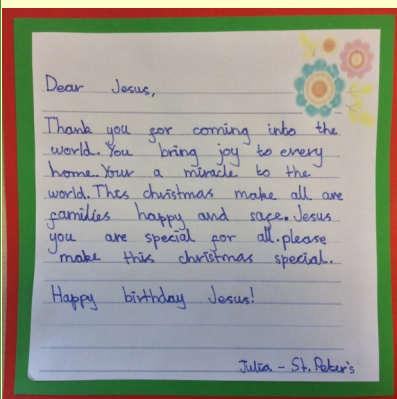 Dear Jesus,
Thank you for coming into the
world. You bring joy to every
home. Your a miracle to the
world. This christmas make all are
families happy and safe. Jesus
you are special for all. please
make this christmas special.
Happy birthday Jesus!
Julia - St. Peter's